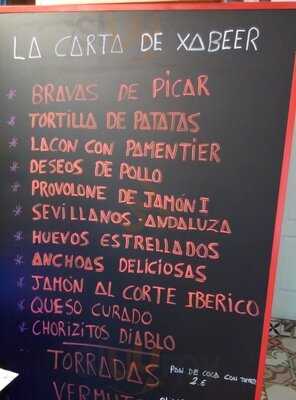 LA CARTA DE XABEER
* BRAVAS DE PICAR
* TORTILLA DE PATATAS
* LACON CON PAMENTIER
* DESEOS DE POLLO
* PROVOLONE DE JAMÓN I
* SEVILLANOS-ANDALUZA
* HUEVOS ESTRELLADOS
* ANCHOAS DELICIOSAS
* JAMÓN AL CORTE IBERICO
* QUESO CURADO
* CHORIZITOS DIABLO
TORRADAS
PAN DE COCA CON
2.€
VERMUT